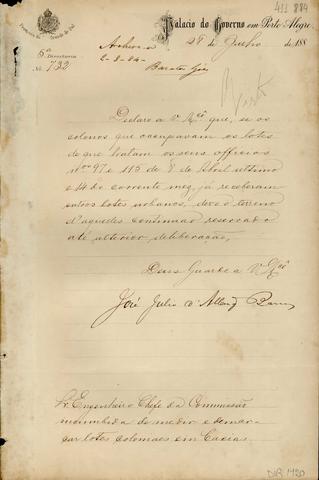 411 884
Palacio do Governo em Porto Alegre,
28 de Julho de 188
Provincia do Rio Grande do Sul
5ª Directoria
Nº 732
Archive-se
2-8-84
Visto
Declaro a Vmcê que, se os
colonos que occupavam os lotes
de que tratam os seus officios
nos 97 e 113 de 8 de Abril ultimo
e 14 do corrente mez, já receberam
outros lotes urbanos, deve o terreno
d'aquelles continuar reservado
até ulterior deliberação.
Deus Guarde a Vmcê
José Julio d'Albuqe Barros
Sr. Engenheiro Chefe da Commissão
incumbida de medir e demar-
car lotes coloniaes em Caxias.